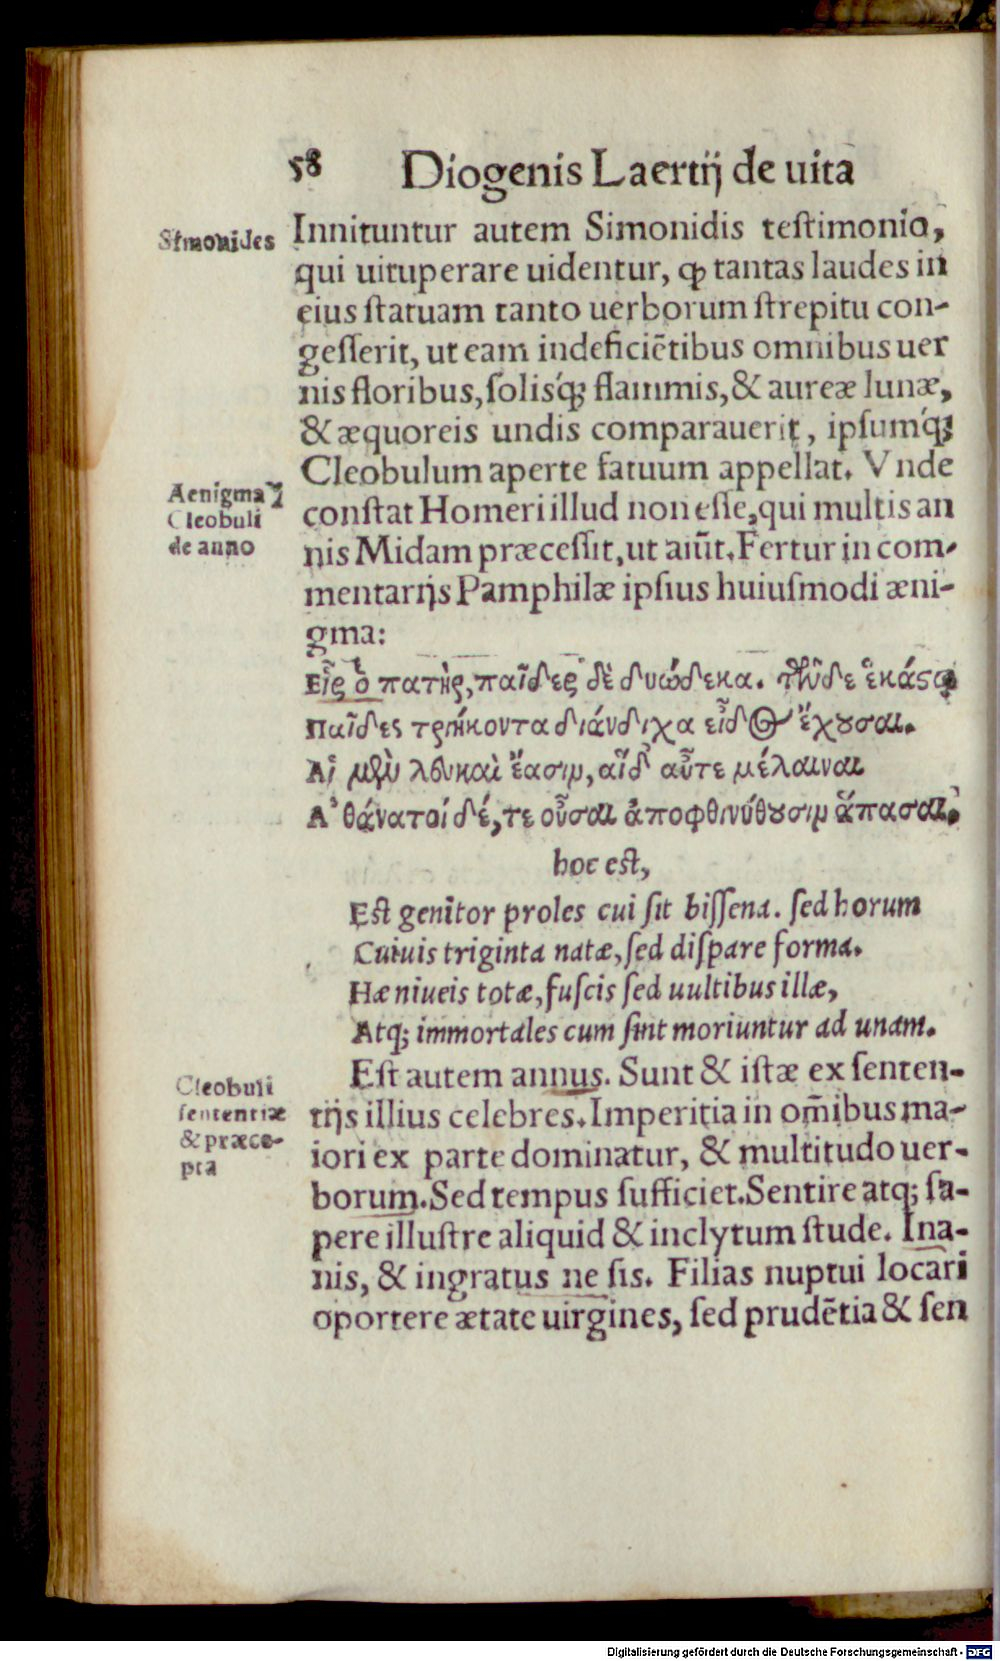 58 Diogenis Laertij de uita
Simonides
Innituntur autem Simonidis testimonio,
qui uituperare uidentur, ꝙ tantas laudes in
eius statuam tanto uerborum strepitu con-
gesserit, ut eam indeficiētibus omnibus uer
nis floribus, solisq́; flammis, & aureæ lunæ,
& æquoreis undis comparauerit, ipsumq́;
Cleobulum aperte fatuum appellat. Vnde
Aenigma
Cleobuli
de anno
constat Homeri illud non esse, qui multis an
nis Midam præcessit, ut aiūt. Fertur in com-
mentarijs Pamphilæ ipsius huiusmodi æni-
gma:
Εἷς ὁ πατὴρ, παῖδες δὲ δυώδεκα. τῶνδε ἑκάστῳ
Παῖδες τριήκοντα διάνδιχα εἶδος ἔχουσαι.
Αἱ μὲν λευκαὶ ἔασιν, αἵδ᾽ αὖτε μέλαιναι
Ἀθάνατοί δέ, τε οὖσαι ἀποφθινύθουσιν ἅπασαι.
hoc est,
Est genitor proles cui sit bissena. sed horum
Cuiuis triginta natæ, sed dispare forma.
Hæ niueis totæ, fuscis sed uultibus illæ,
Atq; immortales cum sint moriuntur ad unam.
Cleobuli
sententiæ
& præce-
pta
Est autem annus. Sunt & istæ ex senten-
tijs illius celebres. Imperitia in om̄ibus ma-
iori ex parte dominatur, & multitudo uer-
borum. Sed tempus sufficiet. Sentire atq; sa-
pere illustre aliquid & inclytum stude. Ina-
nis, & ingratus ne sis. Filias nuptui locari
oportere ætate uirgines, sed prudētia & sen
Digitalisierung gefördert durch die Deutsche Forschungsgemeinschaft - DFG